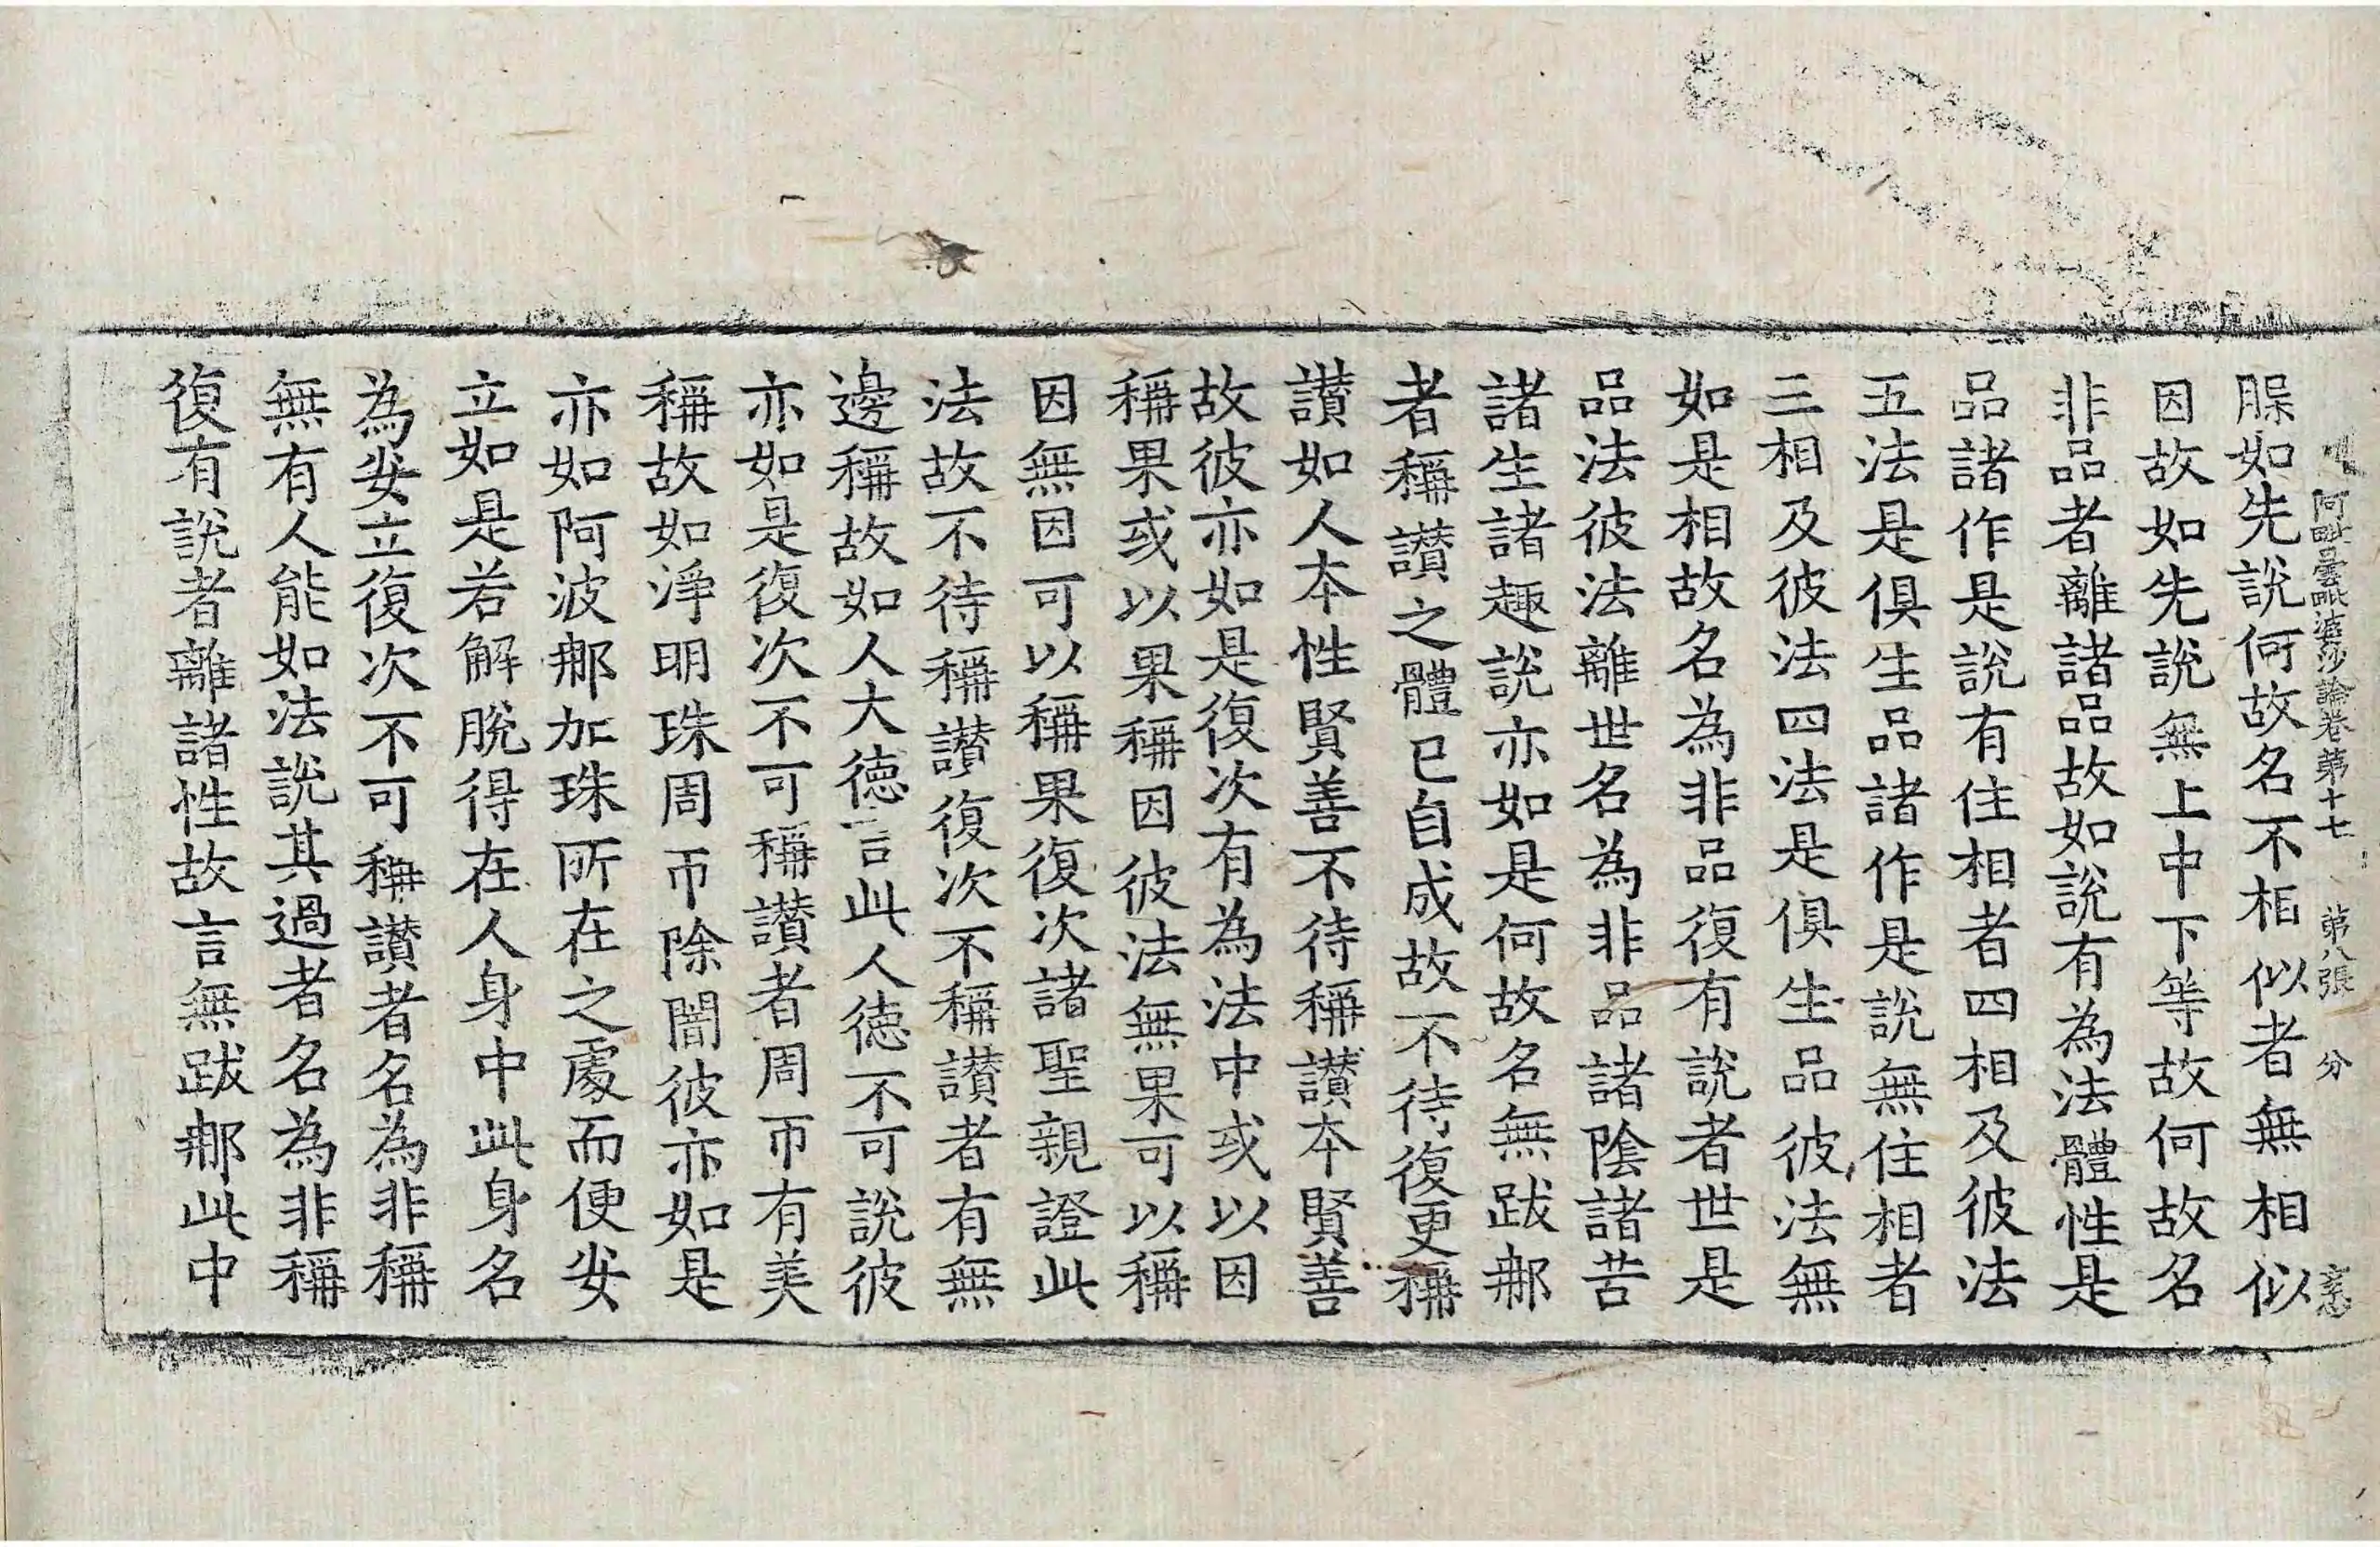 阿毗曇毗婆沙論卷第十七 第八張 分 志
脲如先說何故名不相似者無相似
因故如先說無上中下等故何故名
非品者離諸品故如說有為法體性是
品諸作是說有住相者四相及彼法
五法是俱生品諸作是說無住相者
三相及彼法四法是俱生品彼法無
如是相故名為非品復有說者世是
品法彼法離世名為非品諸陰諸苦
諸生諸趣說亦如是何故名無跋那
者稱讃之體已自成故不待復更稱
讃如人本性賢善不待稱讃本賢善
故彼亦如是復次有為法中或以因
稱果或以果稱因彼法無果可以稱
因無因可以稱果復次諸聖親證此
法故不待稱讃復次不稱讃者有無
邊稱故如人大德言此人德不可說彼
亦如是復次不可稱讃者周帀有美
稱故如淨明珠周帀除闇彼亦如是
亦如阿波那加珠所在之處而便安
立如是若解脫得在人身中此身名
為安立復次不可稱讃者名為非稱
無有人能如法說其過者名為非稱
復有說者離諸性故言無跋那此中